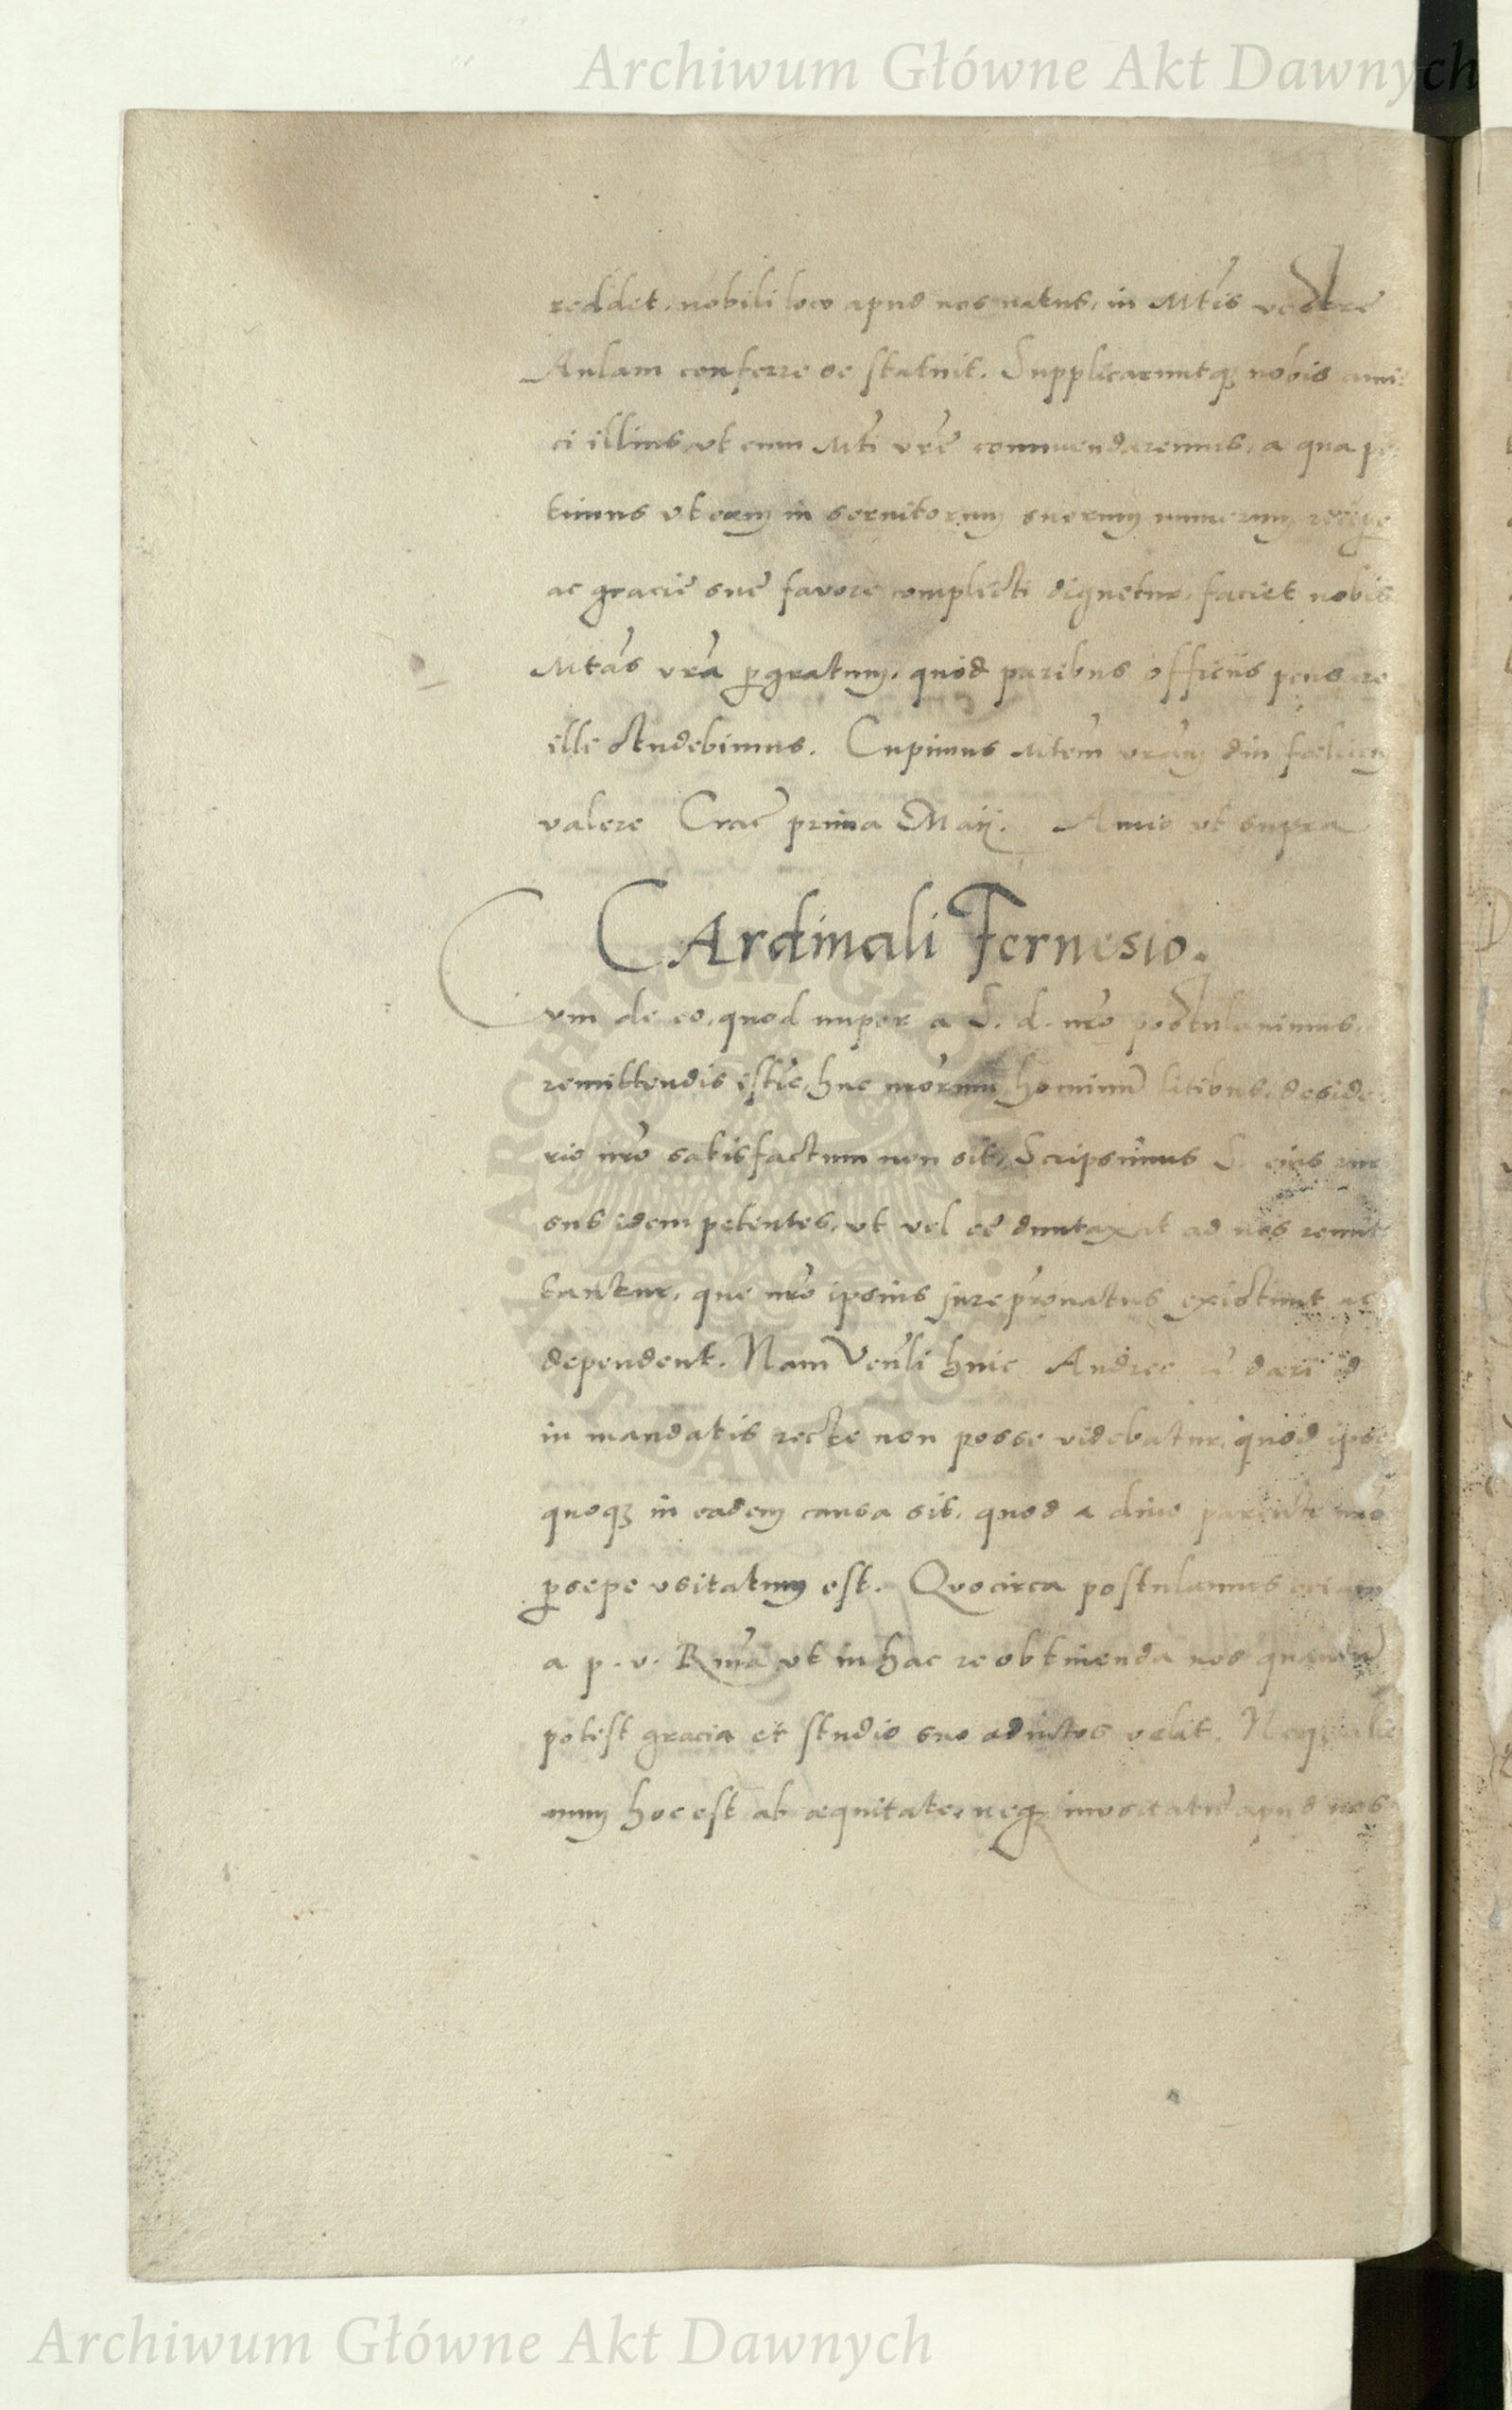 Archiwum Główne Akt Dawnych
reddet, nobili loco apud nos natus, in Mtis vestre
Aulam conferre se statuit. Supplicaruntq nobis ami:
ci illius, vt eum Mti vrē commendaremus, a qua pe
timus vt eum in servitorum suorum numerum recipe
ac gracie sue favore complecti dignetur, faciet nobis
Mtas vra pgratum, quod paribus officiis pensare
illi studebimus. Cupimus Mtem vram diu foeliciter
valere Crac prima Maij. Anno vt supra
CArdinali Fernesio.
Cum de eo, quod nuper a S. d. nro postulavimus,
remittendis istic huc nrorum hominū litibus, deside:
rio nro satisfactum non sit, Scripsimus S. eius rur
sus idem petentes, vt vel eē duntaxat ad nos remit
tantur, que nro ipsius jurepronatus existunt ac
dependent. Nam Venli huic Andree dari id
in mandatis recte non posse videbatur, quod ipse
quoq in eadem causa sit, quod a divo parente nro
psepe vsitatum est. Quocirca postulamus etiam
a p. v. Rma vt in hac re obtinenda nos quantū
potest gracia et studio suo adiutos velit. Neq alie
num hoc est ab æquitate, neq inusitatū apud nos
ARCHIWUM GŁÓWNE AKT DAWNYCH
Archiwum Główne Akt Dawnych